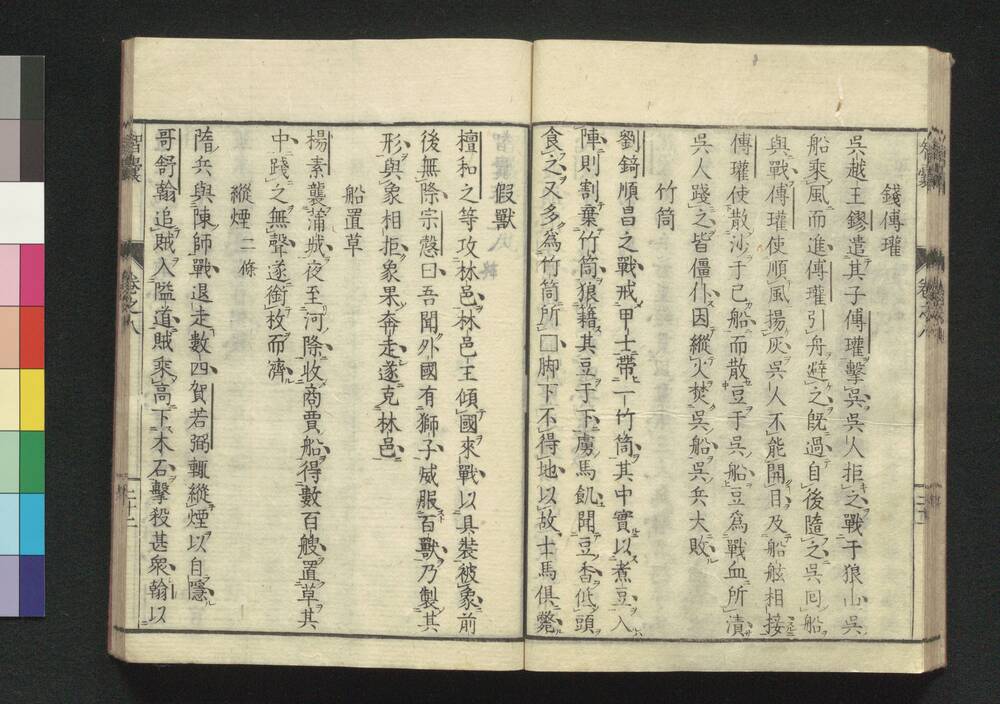 錢傳瓘
吳越王鏐遣其子傳瓘擊吳吳人拒之戰于狼山吳
船乘風而進傳瓘引舟避之既過自後隨之吳回船
與戰傳瓘使順風揚灰吳人不能開目及船舷相接
傳瓘使散沙于已船而散豆于吳船豆為戰血所漬
吳人踐之皆僵仆因縱火焚吳船吳兵大敗
竹筒
劉錡順昌之戰戒甲士帶一竹筒其中實以煮豆入
陣則割棄竹筒狼藉其豆于下虜馬飢聞豆香低頭
食之又多為竹筒所□脚下不得地以故士馬俱斃
假獸
檀和之等攻林邑林邑王傾國來戰以具裝被象前
後無際宗愨曰吾聞外國有獅子威服百獸乃製其
形與象相拒象果奔走遂克林邑
船置草
楊素襲蒲城夜至河際收商賈船得數百艘置草其
中踐之無聲遂銜枚而濟
縱煙二條
隋兵與陳師戰退走數四賀若弼輒縱煙以自隱
哥舒翰追賊入隘道賊乘高下木石擊殺甚衆翰以
智囊
卷之八
二十二